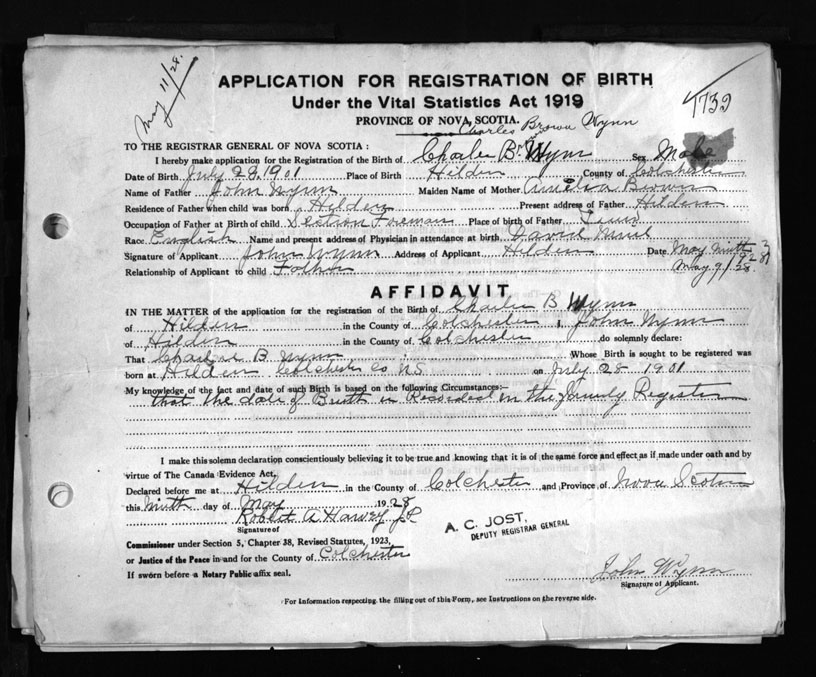 May 11/28.
APPLICATION FOR REGISTRATION OF BIRTH
Under the Vital Statistics Act 1919
1732
PROVINCE OF NOVA SCOTIA.
Charles Brown Wynn
TO THE REGISTRAR GENERAL OF NOVA SCOTIA :
I hereby make application for the Registration of the Birth of Charles B. Wynn Sex Male
Date of Birth July 28, 1901 Place of Birth Hilden County of Colchester
Name of Father John Wynn Maiden Name of Mother Amelia Brown
Residence of Father when child was born Hilden Present address of Father Hilden
Occupation of Father at Birth of child Section Foreman Place of birth of Father
Race English Name and present address of Physician in attendance at birth David
Signature of Applicant John Wynn Address of Applicant Hilden Date May ninth
May 9/28.
Relationship of Applicant to child Father
AFFIDAVIT
IN THE MATTER of the application for the registration of the Birth of Charles B Wynn
of Hilden in the County of Colchester I, John Wynn
of Hilden in the County of Colchester do solemnly declare:
That Charles B. Wynn Whose Birth is sought to be registered was
born at Hilden Colchester Co NS on July 28 1901
My knowledge of the fact and date of such Birth is based on the following Circumstances:—
that the date of Birth is Recorded in the family Register
I make this solemn declaration conscientiously believing it to be true and knowing that it is of the same force and effect as if made under oath and by
virtue of The Canada Evidence Act.
Declared before me at Hilden in the County of Colchester and Province of Nova Scotia
this ninth day of May 1928
Robert A Harvey J.P
Signature of
A. C. JOST,
DEPUTY REGISTRAR GENERAL
Commissioner under Section 5, Chapter 38, Revised Statutes, 1923,
or Justice of the Peace in and for the County of Colchester
If sworn before a Notary Public affix seal.
John Wynn
Signature of Applicant.
For Information respecting the filling out of this Form, see Instructions on the reverse side.